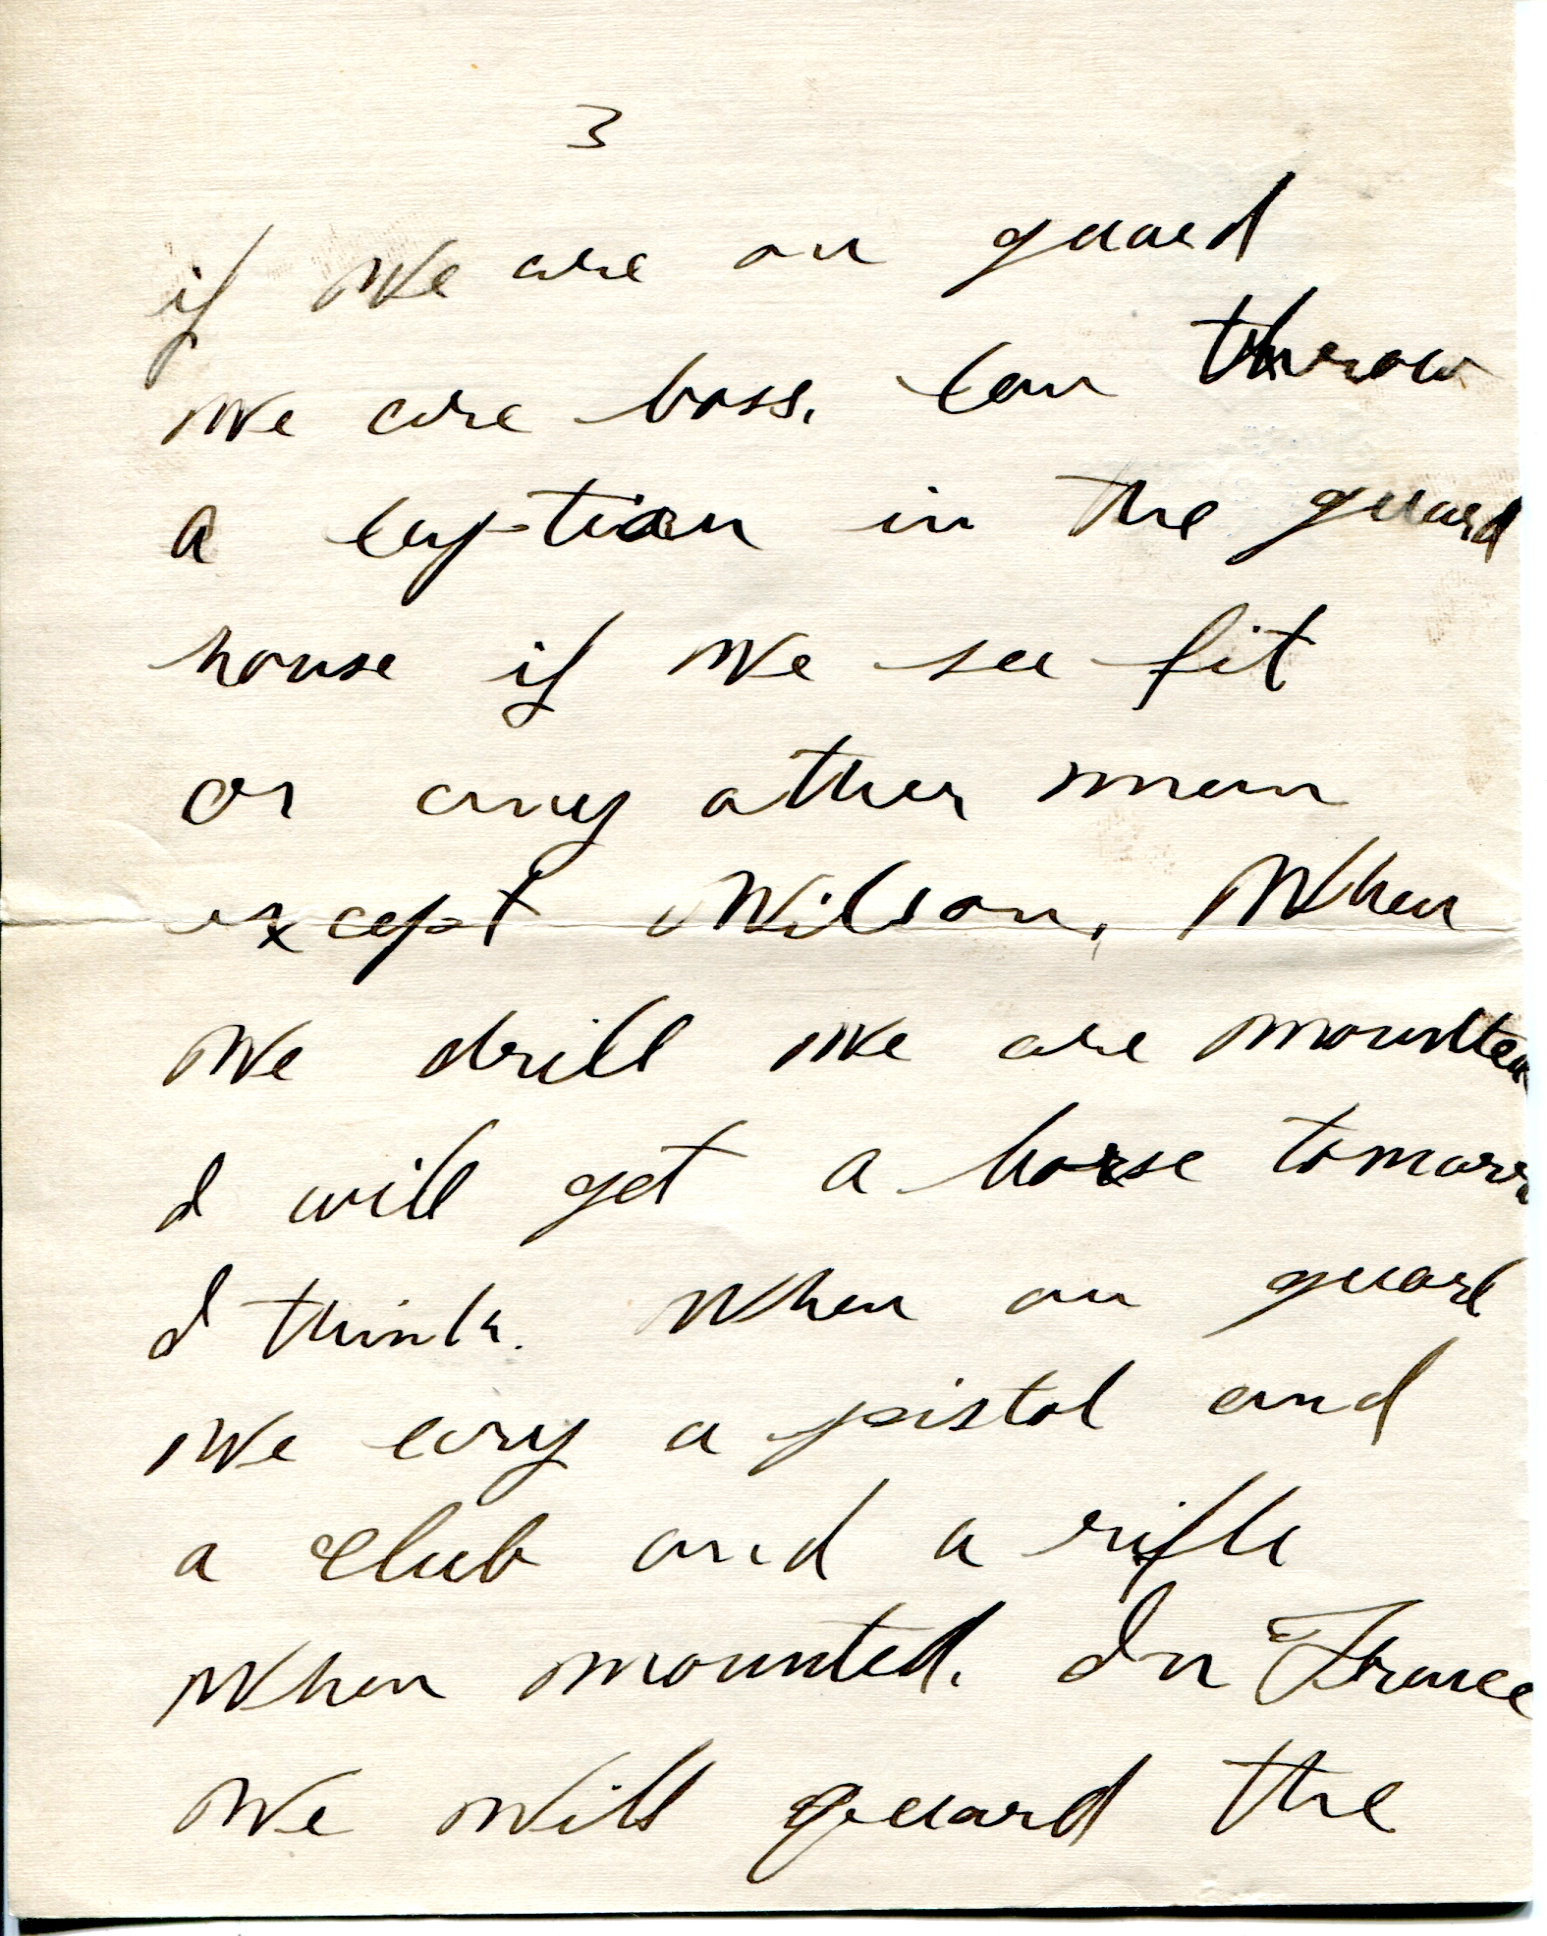 3
if we are on guard
we are boss. Can throw
a caption in the guard
house if we see fit
or any other man
except Wilson. When
we drill we are mounted
I will get a horse tomorro
I think. When on guard
we cary a pistol and
a club and a rifle
when mounted. In France
we will guard the